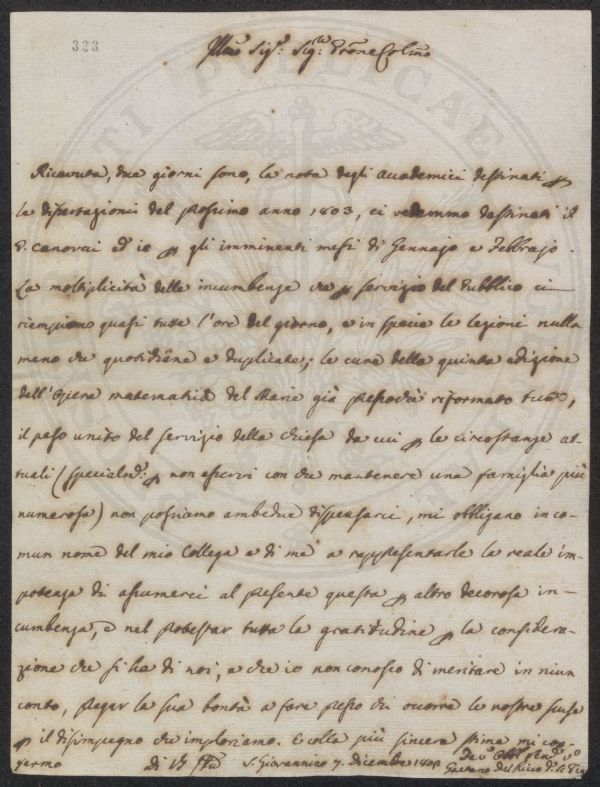 323
Illmo Sigr. Sigr. Prone Colmo
Ricevuta, due giorni sono, la nota degli accademici destinati p
le dissertazioni del prossimo anno 1803, ci vedemmo destinati il
P. Canovai ed io p gli imminenti mesi di Gennajo e Febbrajo.
La moltiplicità delle incumbenze che p servizio del Pubblico ci
riempiono quasi tutte l'ore del giorno, e in specie le lezioni nulla
meno che quotidiane e duplicate; le cure della quinta edizione
dell'Opera matematica del Marie già pressochè riformato tutto,
il peso unito del servizio della chiesa da cui p le circostanze at-
tuali (specialm. p non esservi con che mantenere una famiglia più
numerosa) non possiamo ambedue dispensarci, mi obbligano in co-
mun nome del mio Collega e di me a rappresentarle la reale im-
potenza di assumerci al presente questa p altro decorosa in-
cumbenza, e nel protestar tutta la gratitudine p la considera-
zione che si ha di noi, e che io non conosco di meritare in niun
conto, pregar la sua bontà a fare presso chi occorre le nostre scuse
p il disimpegno che imploriamo. E colla più sincera stima mi con-
fermo
di VS Illma S. Giovannino 7. dicembre 1802
Gaetano del Ricco